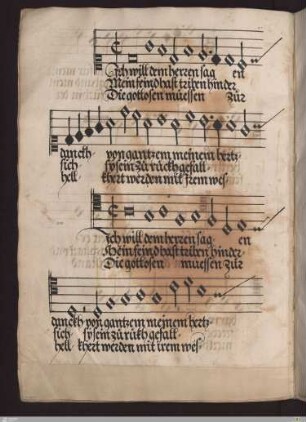 Ich will dem herren sag en
Mein feind hast triben hinder
Die gotlosen müessen zür
danckh von gantzem meinem hertz
sich sy sein zů rückh gefall
hell khert werden mit irem wes
Ich will dem herren sag en
Mein feind hast triben hinder
Die gotlosen müessen zür
danckh von gantzem meinem hertz
sich sy sein zů rückh gefall
hell khert werden mit irem wes